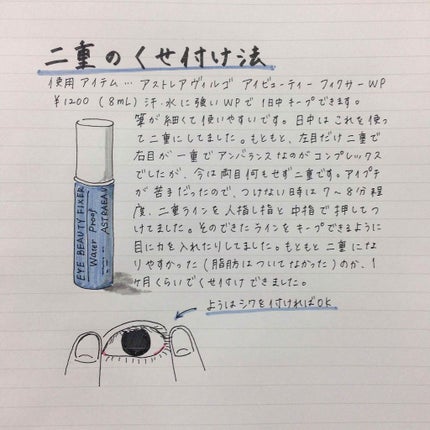 二重のくせ付け法
使用アイテム… アストレアヴィルゴ アイビューティー フィクサーWP
¥1200 (8mL) 汗・水に強いWPで1日中キープできます。
筆が細くて使いやすいです。日中はこれを使っ
て二重にしてました。もともと、左目だけ二重で
右目が一重でアンバランスなのがコンプレックス
でしたが、今は両目何もせず二重です。アイプチ
が苦手だったので、つけない日時は7〜8分程
度、二重ラインを人指し指と中指で押してつ
けてました。そのできたラインをキープできるように
目に力を入れたりしてました。もともと二重にな
りやすかった(脂肪はついてなかった)のか、1
ヶ月くらいでくせ付けできました。
EYE BEAUTY FIXER
Water Proof
ASTRAEA
ようはシワを付ければOK